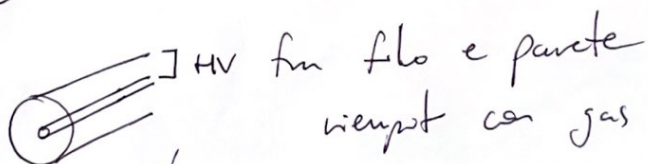 ] HV fra filo e parete
riempito con gas